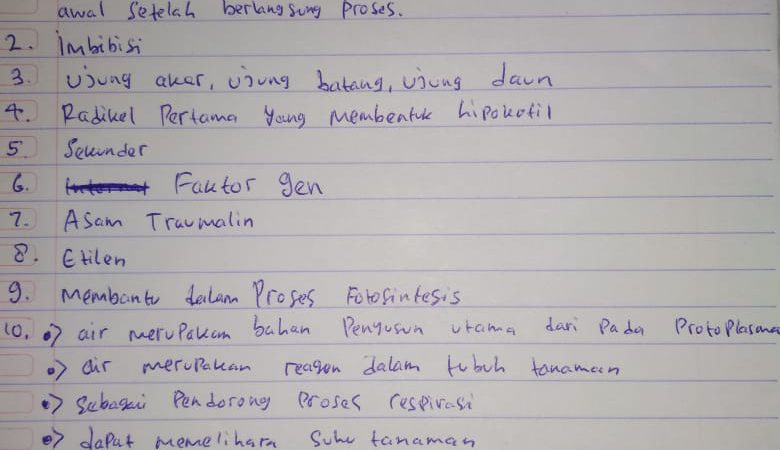 awal setelah berlangsung proses.
2. Imbibisi
3. Ujung akar, ujung batang, ujung daun
4. Radikel Pertama yang membentuk hipokotil
5. Sekunder
6. Faktor gen
7. Asam Traumalin
8. Etilen
9. Membantu dalam Proses Fotosintesis
10. •> air merupakan bahan Penyusun utama dari Pada Protoplasma
•> air merupakan reagen dalam tubuh tanaman
•> Sebagai Pendorong Proses respirasi
•> dapat memelihara Suhu tanaman